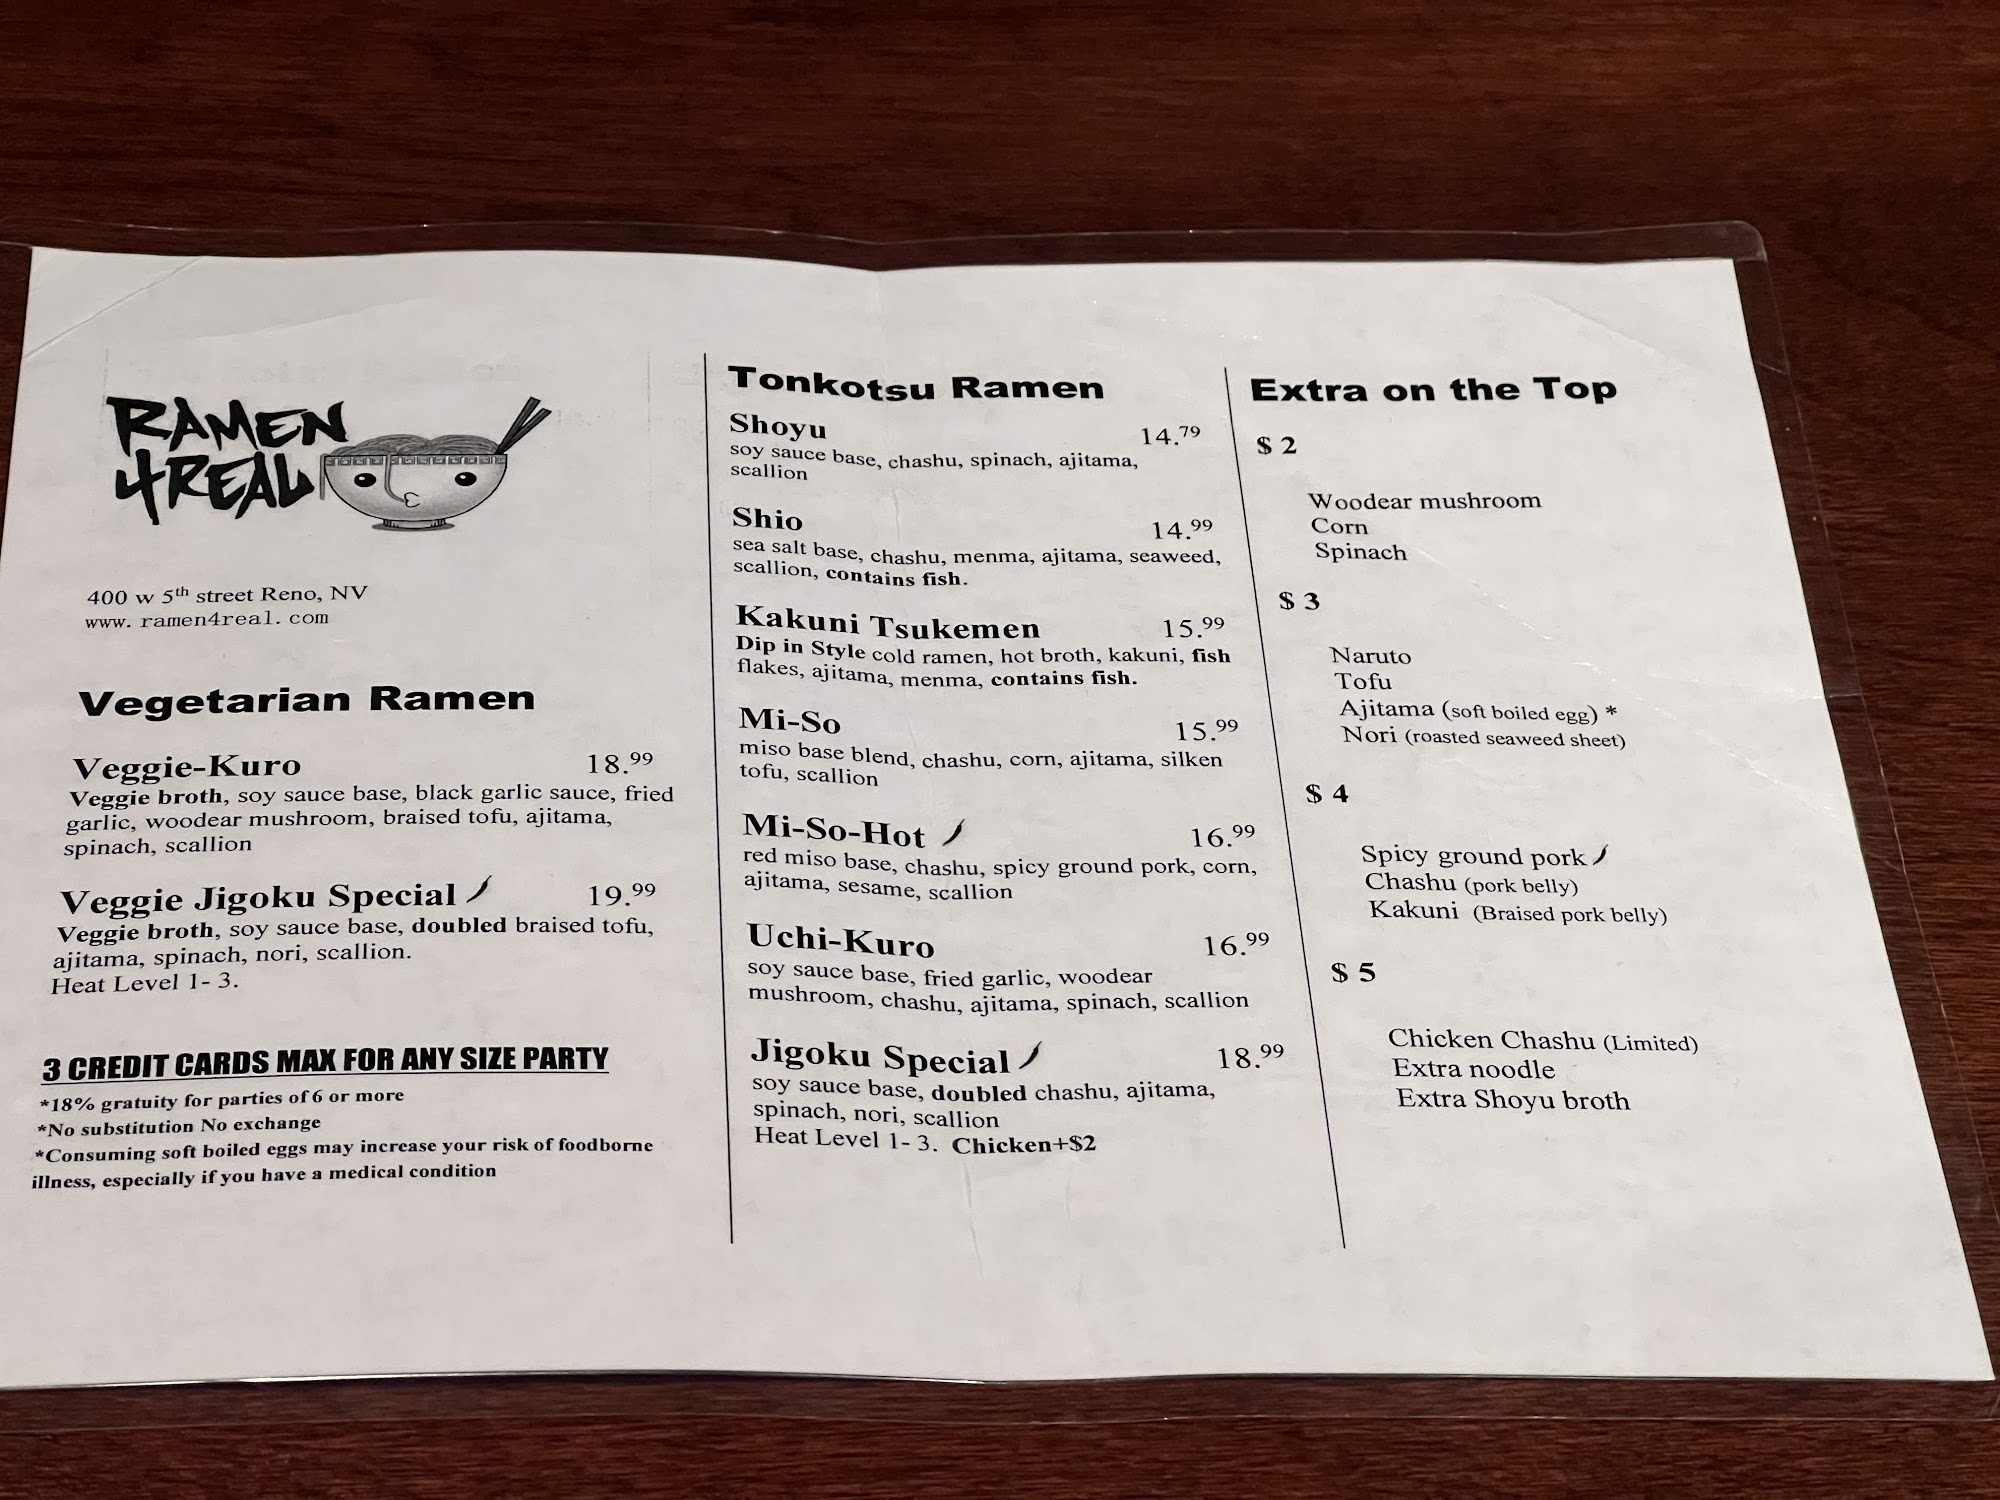 RAMEN
4REAL
400 w 5th street Reno, NV
www. ramen4real. com
Vegetarian Ramen
Veggie-Kuro 18.99
Veggie broth, soy sauce base, black garlic sauce, fried
garlic, woodear mushroom, braised tofu, ajitama,
spinach, scallion
Veggie Jigoku Special 19.99
Veggie broth, soy sauce base, doubled braised tofu,
ajitama, spinach, nori, scallion.
Heat Level 1- 3.
3 CREDIT CARDS MAX FOR ANY SIZE PARTY
*18% gratuity for parties of 6 or more
*No substitution No exchange
*Consuming soft boiled eggs may increase your risk of foodborne
illness, especially if you have a medical condition
Tonkotsu Ramen
Shoyu 14.79
soy sauce base, chashu, spinach, ajitama,
scallion
Shio 14.99
sea salt base, chashu, menma, ajitama, seaweed,
scallion, contains fish.
Kakuni Tsukemen 15.99
Dip in Style cold ramen, hot broth, kakuni, fish
flakes, ajitama, menma, contains fish.
Mi-So 15.99
miso base blend, chashu, corn, ajitama, silken
tofu, scallion
Mi-So-Hot 16.99
red miso base, chashu, spicy ground pork, corn,
ajitama, sesame, scallion
Uchi-Kuro 16.99
soy sauce base, fried garlic, woodear
mushroom, chashu, ajitama, spinach, scallion
Jigoku Special 18.99
soy sauce base, doubled chashu, ajitama,
spinach, nori, scallion
Heat Level 1- 3. Chicken+$2
Extra on the Top
$ 2
Woodear mushroom
Corn
Spinach
$ 3
Naruto
Tofu
Ajitama (soft boiled egg) *
Nori (roasted seaweed sheet)
$ 4
Spicy ground pork
Chashu (pork belly)
Kakuni (Braised pork belly)
$ 5
Chicken Chashu (Limited)
Extra noodle
Extra Shoyu broth